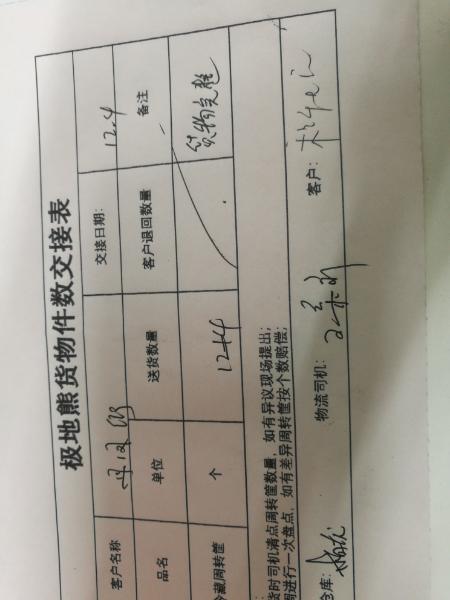 极地熊货物件数交接表
客户名称 交接日期: 12.4
品名 单位 送货数量 客户退回数量 备注
冷藏周转筐 个 1244 货物完整
货时司机清点周转筐数量，如有异议现场提出；
周进行一次盘点，如有差异周转筐按个数赔偿；
仓库: 物流司机: 客户: